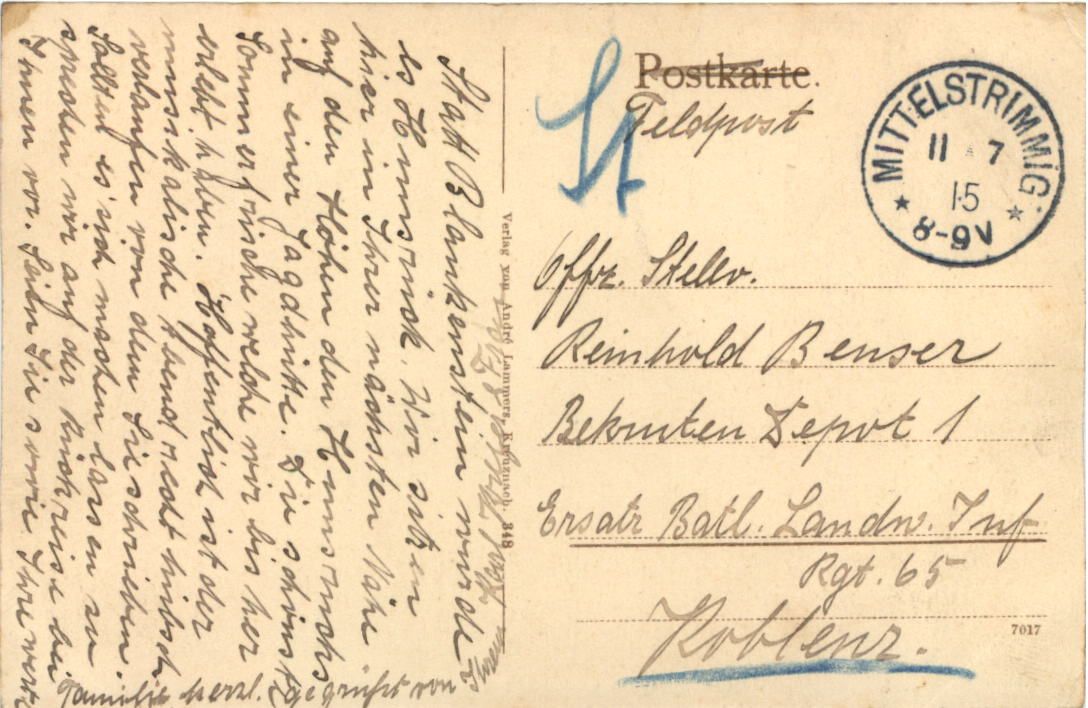 Postkarte.
Feldpost
MITTELSTRIMMIG
11 7
15
8-9V
Offz. Stellv.
Reinhold Benser
Rekruten Depot 1
Ersatz Batl. Landw. Inf
Rgt. 65
Koblenz.
7017
Verlag von André Lammers, Kreuznach. 348
Statt Blankenstein wurde
es Hunsrück. Wir sitzen
hier in Ihrer nächsten Nähe
auf den Höhen des Hunsrücks
in einer Jagdhütte. Die schönste
Sommerfrische welche wir bis her
erlebt haben. Hoffentlich ist der
musikalische Abend recht hübsch
verlaufen von dem Sie schrieben.
Sollte es sich machen lassen so
sprechen wir auf der Rückreise bei
Ihnen vor. Seien Sie sowie Ihre werte
Familie herzl. gegrüßt von